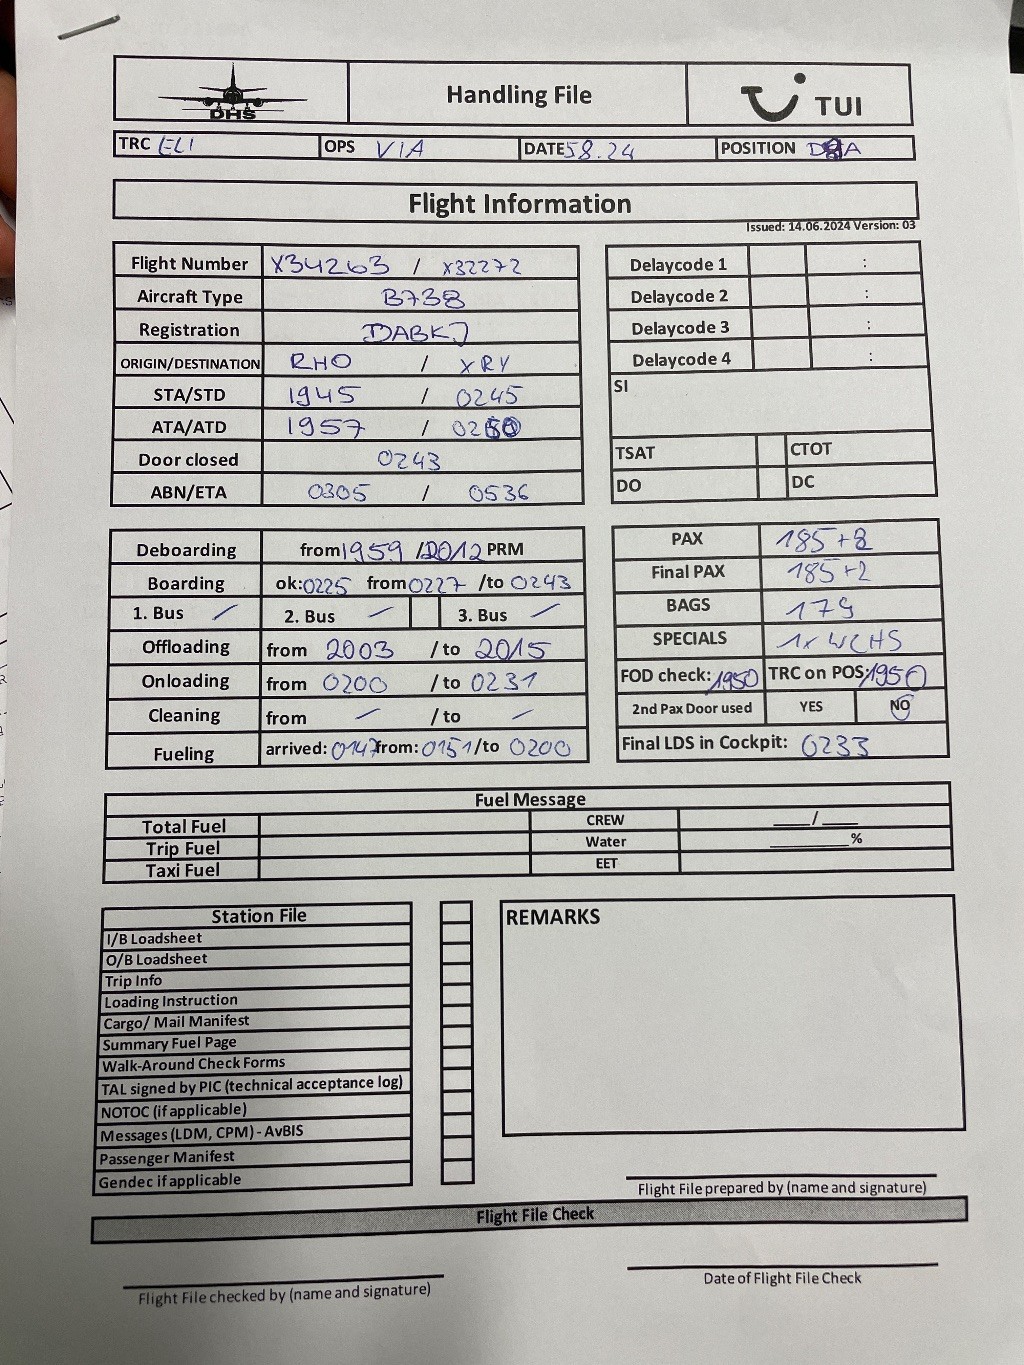 DHS Handling File TUI
TRC ELI OPS VIA DATE 58.24 POSITION
Flight Information
Issued: 14.06.2024 Version: 03
Flight Number X34263 / X32272
Aircraft Type B738
Registration DABKJ
ORIGIN/DESTINATION RHO / XRY
STA/STD 1945 / 0245
ATA/ATD 1957 /
Door closed 0243
ABN/ETA 0305 / 0536
Delaycode 1 :
Delaycode 2 :
Delaycode 3 :
Delaycode 4 :
SI
TSAT CTOT
DO DC
Deboarding from 1959 / 2012 PRM
Boarding ok: 0225 from 0227 /to 0243
1. Bus / 2. Bus / 3. Bus /
Offloading from 2003 / to 2015
Onloading from 0200 / to 0231
Cleaning from / / to /
Fueling arrived: 0147 from: 0151 /to 0200
PAX 185+2
Final PAX 185+2
BAGS 179
SPECIALS 1x WCHS
FOD check: 1950 TRC on POS: 1950
2nd Pax Door used YES NO
Final LDS in Cockpit: 0233
Fuel Message
Total Fuel CREW ___/___
Trip Fuel Water ________%
Taxi Fuel EET
Station File
I/B Loadsheet
O/B Loadsheet
Trip Info
Loading Instruction
Cargo/ Mail Manifest
Summary Fuel Page
Walk-Around Check Forms
TAL signed by PIC (technical acceptance log)
NOTOC (if applicable)
Messages (LDM, CPM) - AvBIS
Passenger Manifest
Gendec if applicable
REMARKS
Flight File prepared by (name and signature)
Flight File Check
Flight File checked by (name and signature)
Date of Flight File Check